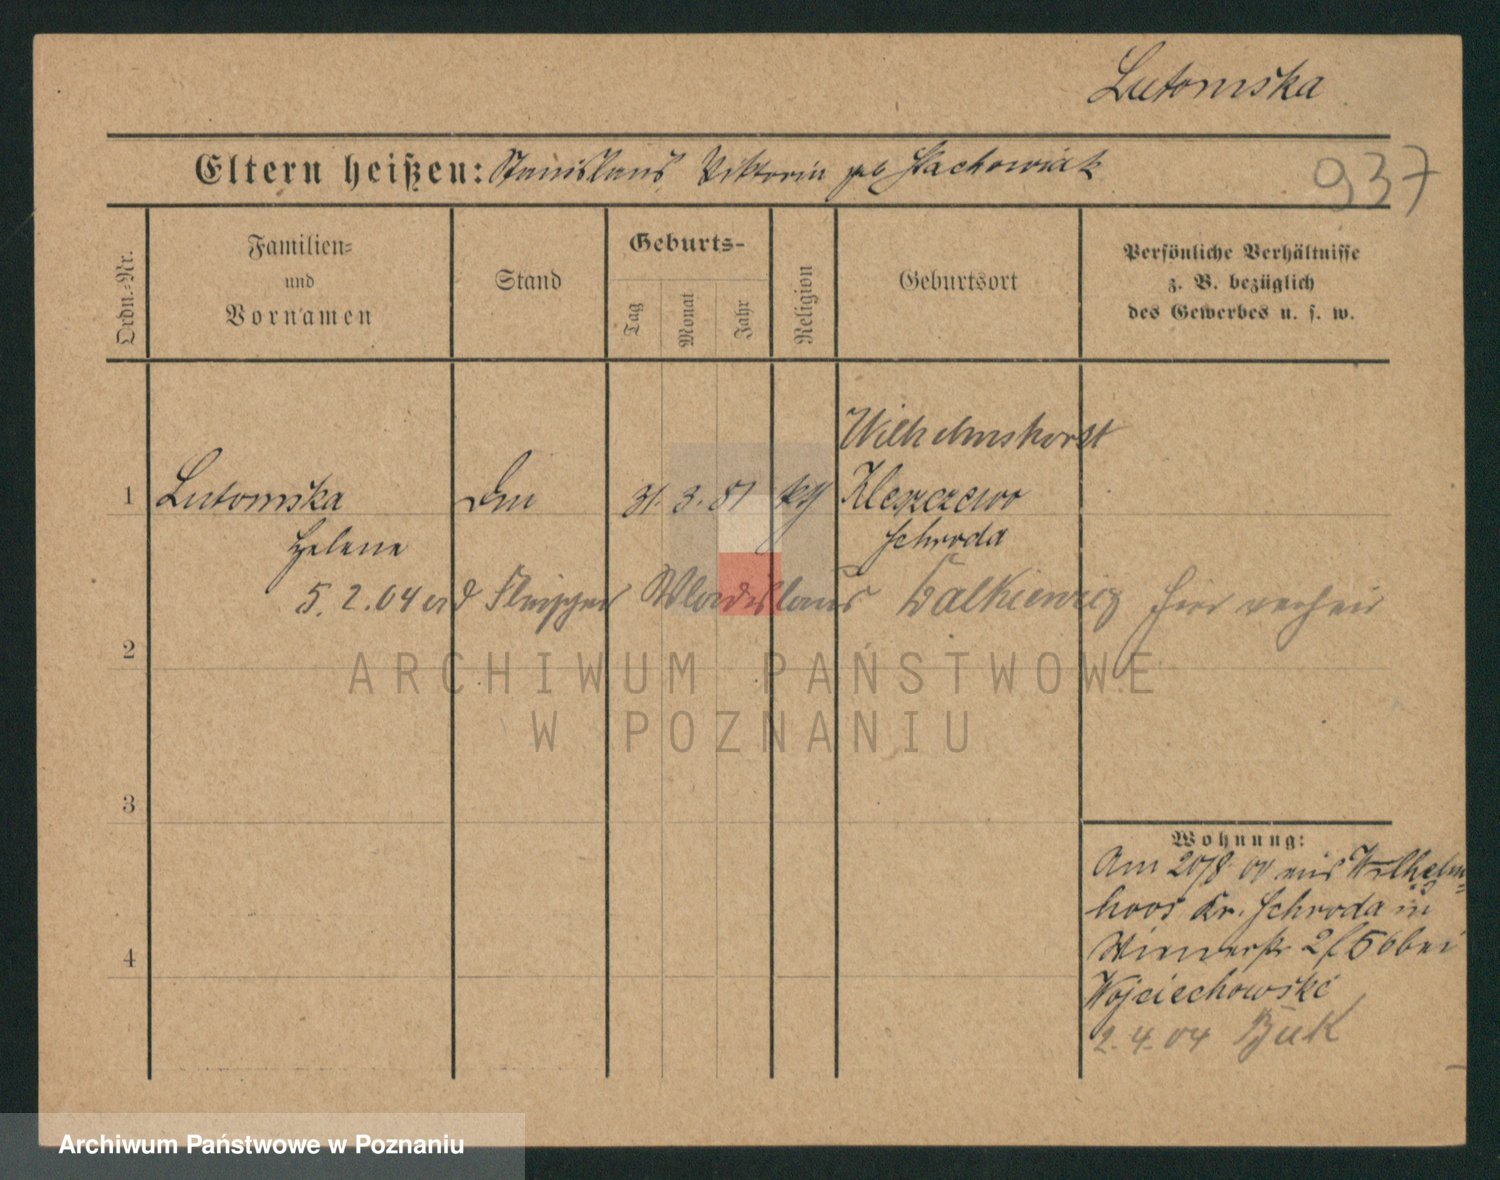 Lutomska
Eltern heißen: Stanislaus Viktoria geb Stachowiak
937
Ordn.-Nr.
Familien-
und
Vornamen
Stand
Geburts-
Tag
Monat
Jahr
Religion
Geburtsort
Persönliche Verhältnisse
z. B. bezüglich
des Gewerbes u. s. w.
Wilhelmshorst
1 Lutomska 31. 3. 81 kth Kleszczewo
Helene Schroda
5. 2. 04 Fleischer Wladislaus hier
2
ARCHIWUM PAŃSTWOWE
W POZNANIU
3
Wohnung:
Am 20/8 00 aus Wilhelms-
Kr. Schroda in
bei
4
Wojciechowski
2. 4. 04 Buk
Archiwum Państwowe w Poznaniu